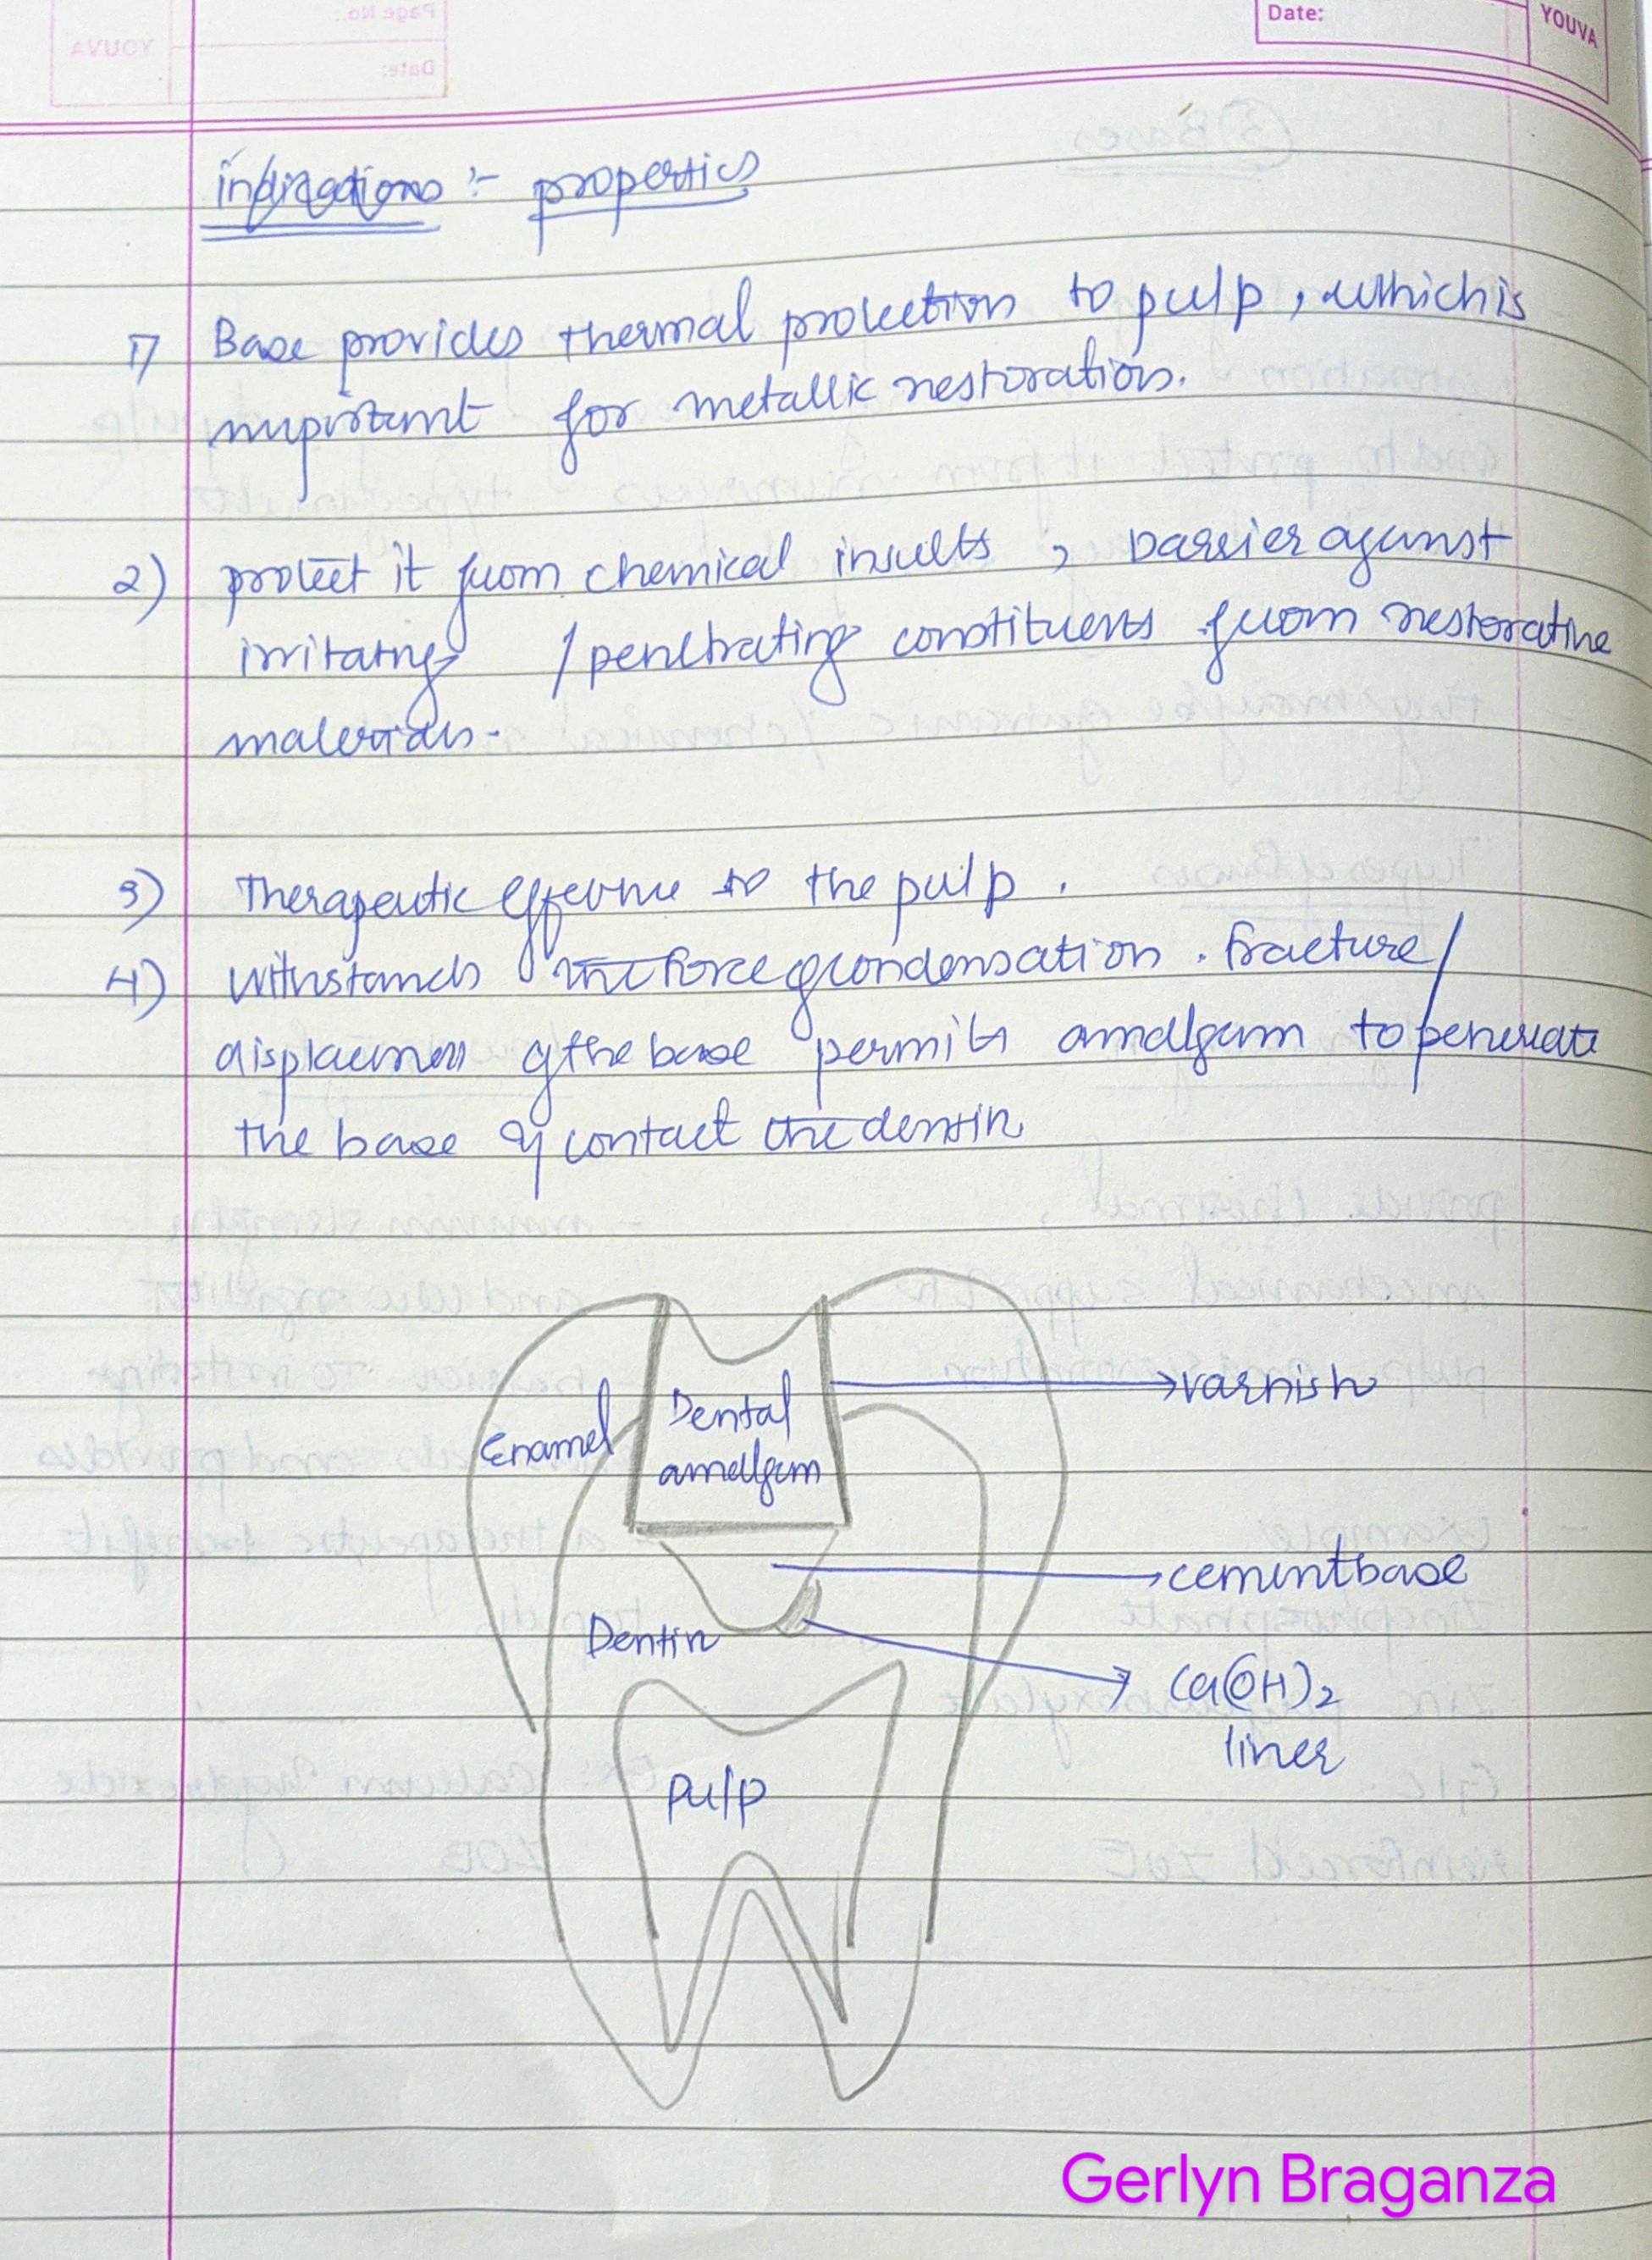 Date:
YOUVA
indications :- properties
1) Base provides thermal protection to pulp, which is
important for metallic restoration.
2) protect it from chemical insults, barrier against
irritating / penetrating constituents from restorative
materials.
3) Therapeutic effective to the pulp.
4) withstands the force of condensation. fracture/
displacement of the base permits amalgam to penetrate
the base & contact the dentin
Enamel
Dental
amalgam
varnish
cement base
Dentin
Ca(OH)2
liner
pulp
Gerlyn Braganza